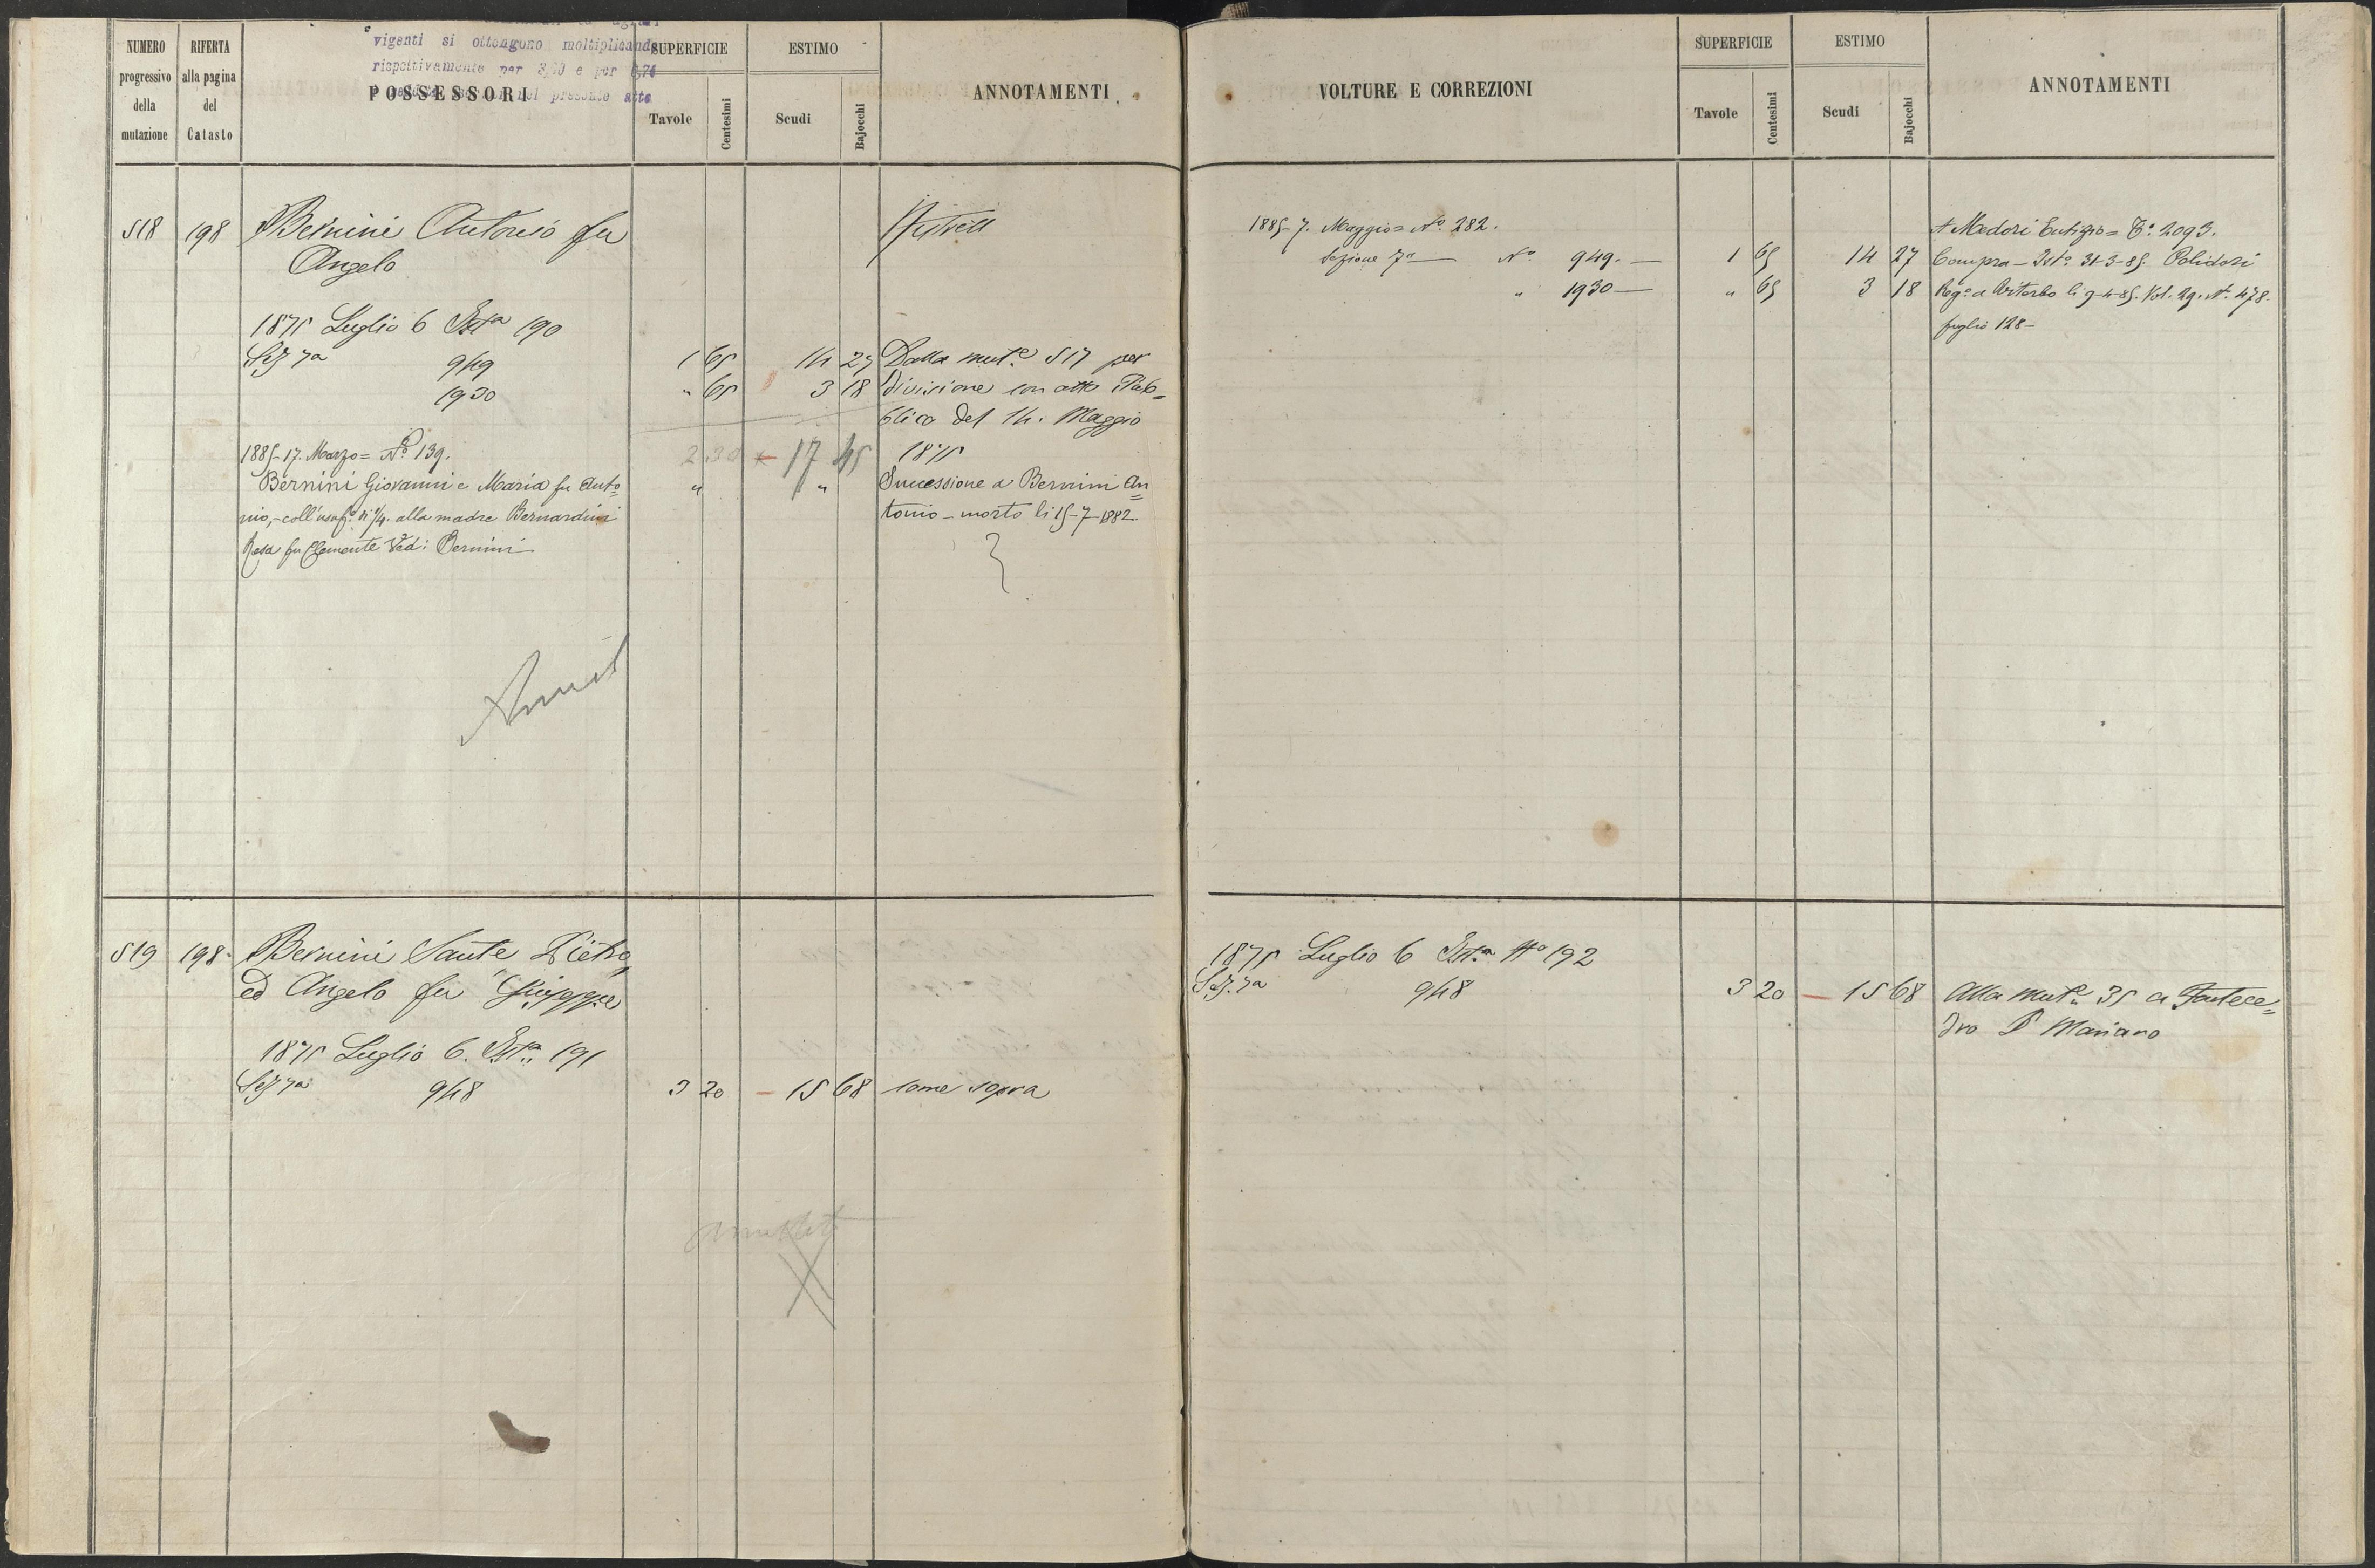 vigenti si ottengono moltiplicando
rispettivamente per
nel presente atto
NUMERO progressivo della mutazione
RIFERTA alla pagina del Catasto
POSSESSORI
SUPERFICIE
Tavole
Centesimi
ESTIMO
Scudi
Bajocchi
ANNOTAMENTI
518 198 Bernini Antonio fu
Angelo
1875 Luglio 6 Ista 190
Sez 7a 949 1 65 14 27 Dalla mut.e 517 per
1930 " 65 3 18 divisione con atto Pub=
blico del 14. Maggio
2 30 17 45 1875
1885-17. Marzo = No. 139.
Bernini Giovanni e Maria fu Anto= " " Successione a Bernini An=
nio,- coll'usufo. di 1/4. alla madre Bernardini tonio - morto li 15-7-1882.
Rosa fu Clemente Ved: Bernini
519 198. Bernini Sante Pietro,
ed Angelo fu Giuseppe
1875 Luglio 6. Ista 191
Sez 7a 948 3 20 - 15 68 come sopra
annullato
VOLTURE E CORREZIONI
SUPERFICIE
Tavole
Centesimi
ESTIMO
Scudi
Bajocchi
ANNOTAMENTI
1885-7. Maggio = No. 282. A Medori Eutizio = To. 2093.
Sezione 7a — No. 949. — 1 65 14 27 Compra - Isto. 31-3-85. Polidori
" 1930 — " 65 3 18 Rego. a Viterbo li 9-4-85. Vol. 29. No. 478.
foglio 128 -
1875 Luglio 6 Ista No 192
Sez. 7a 948 3 20 - 15 68 Alla mut.e 35 a Fontece=
dro P Mariano